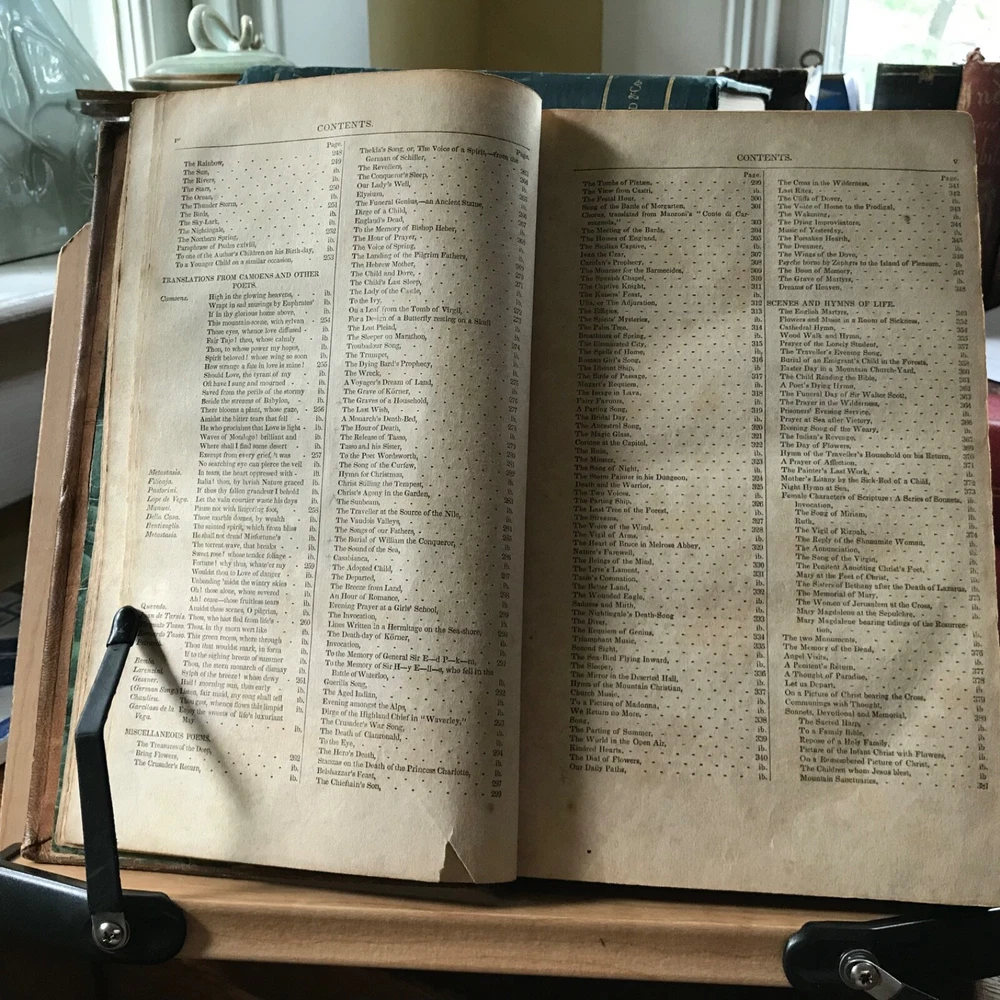 CONTENTS.
Page.
The Rainbow, 248
The Sun, 249
The Rivers, ib.
The Stars, ib.
The Ocean, 250
The Thunder Storm, ib.
The Birds, 251
The Sky-Lark, ib.
The Nightingale, ib.
The Northern Spring, 252
Paraphrase of Psalm cxlviii, ib.
To one of the Author's Children on his Birth-day, ib.
To a Younger Child on a similar occasion, 253
TRANSLATIONS FROM CAMOENS AND OTHER
POETS.
Camoens. High in the glowing heavens, ib.
Wrapt in sad musings by Euphrates' ib.
If in thy glorious home above, ib.
This mountain-scene, with sylvan 254
Those eyes, whence love diffused ib.
Fair Tajo! thou, whose calmly ib.
Thou, to whose power my hopes, ib.
Spirit beloved! whose wing so soon ib.
How strange a fate in love is mine! 255
Should Love, the tyrant of my ib.
Oft have I sung and mourned ib.
Saved from the perils of the stormy ib.
Beside the streams of Babylon, ib.
There blooms a plant, whose gaze, 256
Amidst the bitter tears that fell ib.
He who proclaims that Love is light ib.
Waves of Mondego! brilliant and ib.
Where shall I find some desert ib.
Exempt from every grief, 't was 257
No searching eye can pierce the veil ib.
Metastasio. In tears, the heart oppressed with ib.
Filicaja. Italia! thou, by lavish Nature graced ib.
Pastorini. If thus thy fallen grandeur I behold ib.
Lope de Vega. Let the vain courtier waste his days ib.
Manuel. Pause not with lingering foot, 258
Della Casa. These marble domes, by wealth ib.
Bentivoglio. The sainted spirit, which from bliss ib.
Metastasio. He shall not dread Misfortune's ib.
The torrent wave, that breaks ib.
Sweet rose! whose tender foliage ib.
Fortune! why thus, where'er my 259
Wouldst thou to Love of danger ib.
Unbending 'midst the wintry skies ib.
Oh! those alone, whose severed ib.
Ah! cease—those fruitless tears ib.
Quevedo. Amidst these scenes, O pilgrim, ib.
Thou, who hast fled from life's 260
In thy morn wert like ib.
This green recess, where through ib.
Thou thus wouldst mark, in form ib.
If to the sighing breeze of summer ib.
Bembo. Thou, the stern monarch of dismay ib.
Lorenzini. Sylph of the breeze! whose dewy 261
Gessner. Hail! morning sun, thus early ib.
(German Song.) Listen, fair maid, my song shall tell ib.
Chaulieu. whence flows this limpid ib.
Garcilaso de la Vega. Enjoy the sweets of life's luxuriant May ib.
MISCELLANEOUS POEMS.
The Treasures of the Deep, 262
Bring Flowers, ib.
The Crusader's Return, ib.
Page.
Thekla's Song; or, The Voice of a Spirit,—from the
German of Schiller,
The Revellers,
The Conqueror's Sleep,
Our Lady's Well,
Elysium,
The Funeral Genius,—an Ancient Statue,
Dirge of a Child,
England's Dead,
To the Memory of Bishop Heber,
The Hour of Prayer,
The Voice of Spring,
The Landing of the Pilgrim Fathers,
The Hebrew Mother,
The Child and Dove,
The Child's Last Sleep,
The Lady of the Castle,
To the Ivy,
On a Leaf from the Tomb of Virgil,
For a Design of a Butterfly resting on a Skull
The Lost Pleiad,
The Sleeper on Marathon,
Troubadour Song,
The Trumpet,
The Dying Bard's Prophecy,
The Wreck,
A Voyager's Dream of Land,
The Grave of Körner,
The Graves of a Household,
The Last Wish,
A Monarch's Death-Bed,
The Hour of Death,
The Release of Tasso,
Tasso and his Sister,
To the Poet Wordsworth,
The Song of the Curfew,
Hymn for Christmas,
Christ Stilling the Tempest,
Christ's Agony in the Garden,
The Sunbeam,
The Traveller at the Source of the Nile,
The Vaudois Valleys,
The Songs of our Fathers,
The Burial of William the Conqueror,
The Sound of the Sea,
Casabianca,
The Adopted Child,
The Departed,
The Breeze from Land,
An Hour of Romance,
Evening Prayer at a Girls' School,
The Invocation,
Lines Written in a Hermitage on the Sea-shore,
The Death-day of Körner,
Invocation,
To the Memory of General Sir E—d P—k—m,
To the Memory of Sir H—y E—ll—s, who fell in the
Battle of Waterloo,
Guerilla Song,
The Aged Indian,
Evening amongst the Alps,
Dirge of the Highland Chief in "Waverley,"
The Crusader's War Song,
The Death of Clanronald,
To the Eye,
The Hero's Death,
Stanzas on the Death of the Princess Charlotte,
Belshazzar's Feast, 297
The Chieftain's Son, 299
CONTENTS. v
Page.
The Tombs of Platæa, 299
The View from Castri, ib.
The Festal Hour, 300
Song of the Battle of Morgarten, 301
Chorus, translated from Manzoni's "Conte di Car-
magnola,"
The Meeting of the Bards, 304
The Homes of England, 305
The Sicilian Captive, ib.
Ivan the Czar, 307
Carolan's Prophecy, 308
The Mourner for the Barmecides, 309
The Spanish Chapel, 310
The Captive Knight, 311
The Kaisers' Feast, ib.
Ulla, or The Adjuration, 312
The Effigies, 313
The Spirit's Mysteries, ib.
The Palm Tree, 314
Breathings of Spring, ib.
The Illuminated City, 315
The Spells of Home, ib.
Roman Girl's Song, 316
The Distant Ship, ib.
The Birds of Passage, 317
Mozart's Requiem, ib.
The Image in Lava, 318
Fairy Favours, ib.
A Parting Song, 319
The Bridal Day, ib.
The Ancestral Song, 320
The Magic Glass, 321
Corinna at the Capitol, 322
The Ruin, ib.
The Minster, 323
The Song of Night, ib.
The Storm Painter in his Dungeon, 324
Death and the Warrior, 325
The Two Voices, ib.
The Parting Ship, 326
The Last Tree of the Forest, ib.
The Streams, 327
The Voice of the Wind, 328
The Vigil of Arms, ib.
The Heart of Bruce in Melrose Abbey, 329
Nature's Farewell, ib.
The Beings of the Mind, 330
The Lyre's Lament, 331
Tasso's Coronation, ib.
The Better Land, 332
The Wounded Eagle, ib.
Sadness and Mirth, ib.
The Nightingale's Death-Song 333
The Diver, ib.
The Requiem of Genius, 334
Triumphant Music, ib.
Second Sight, 335
The Sea-Bird Flying Inward, ib.
The Sleeper, ib.
The Mirror in the Deserted Hall, 336
Hymn of the Mountain Christian, ib.
Church Music, 337
To a Picture of Madonna, ib.
We Return no More, ib.
Song, 338
The Parting of Summer, ib.
The World in the Open Air, 339
Kindred Hearts, ib.
The Dial of Flowers, 340
Our Daily Paths, ib.
Page.
The Cross in the Wilderness, 341
Last Rites, 342
The Cliffs of Dover, ib.
The Voice of Home to the Prodigal, 343
The Wakening, ib.
The Dying Improvisatore,
Music of Yesterday,
The Forsaken Hearth, 345
The Dreamer, ib.
The Wings of the Dove, 346
Psyche borne by Zephyrs to the Island of Pleasure, ib.
The Boon of Memory, 347
The Grave of Martyrs, ib.
Dreams of Heaven, 348
SCENES AND HYMNS OF LIFE.
The English Martyrs, 349
Flowers and Music in a Room of Sickness,
Cathedral Hymn,
Wood Walk and Hymn,
Prayer of the Lonely Student,
The Traveller's Evening Song,
Burial of an Emigrant's Child in the Forests,
Easter Day in a Mountain Church-Yard,
The Child Reading the Bible,
A Poet's Dying Hymn,
The Funeral Day of Sir Walter Scott,
The Prayer in the Wilderness,
Prisoners' Evening Service,
Prayer at Sea after Victory,
Evening Song of the Weary,
The Indian's Revenge,
The Day of Flowers,
Hymn of the Traveller's Household on his Return,
A Prayer of Affliction,
The Painter's Last Work,
Mother's Litany by the Sick-Bed of a Child,
Night Hymn at Sea,
Female Characters of Scripture: A Series of Sonnets,
Invocation,
The Song of Miriam,
Ruth,
The Vigil of Rizpah,
The Reply of the Shunamite Woman,
The Annunciation,
The Song of the Virgin,
The Penitent Anointing Christ's Feet,
Mary at the Feet of Christ,
The Sisters of Bethany after the Death of Lazarus,
The Memorial of Mary,
The Women of Jerusalem at the Cross,
Mary Magdalene at the Sepulchre,
Mary Magdalene bearing tidings of the Resurrec-
tion,
The two Monuments,
The Memory of the Dead,
Angel Visits,
A Penitent's Return,
A Thought of Paradise,
Let us Depart,
On a Picture of Christ bearing the Cross,
Communings with Thought,
Sonnets, Devotional and Memorial,
The Sacred Harp,
To a Family Bible,
Repose of a Holy Family,
Picture of the Infant Christ with Flowers,
On a Remembered Picture of Christ,
The Children whom Jesus blest,
Mountain Sanctuaries, 381